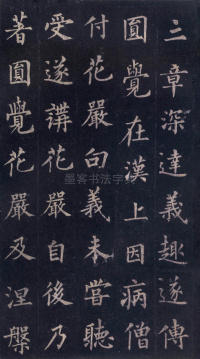 三章深達義趣遂傳
圓覺在漢上因病僧
付花嚴句義未嘗聽
受遂講花嚴自後乃
著圓覺花嚴及涅槃
墨客书法字典